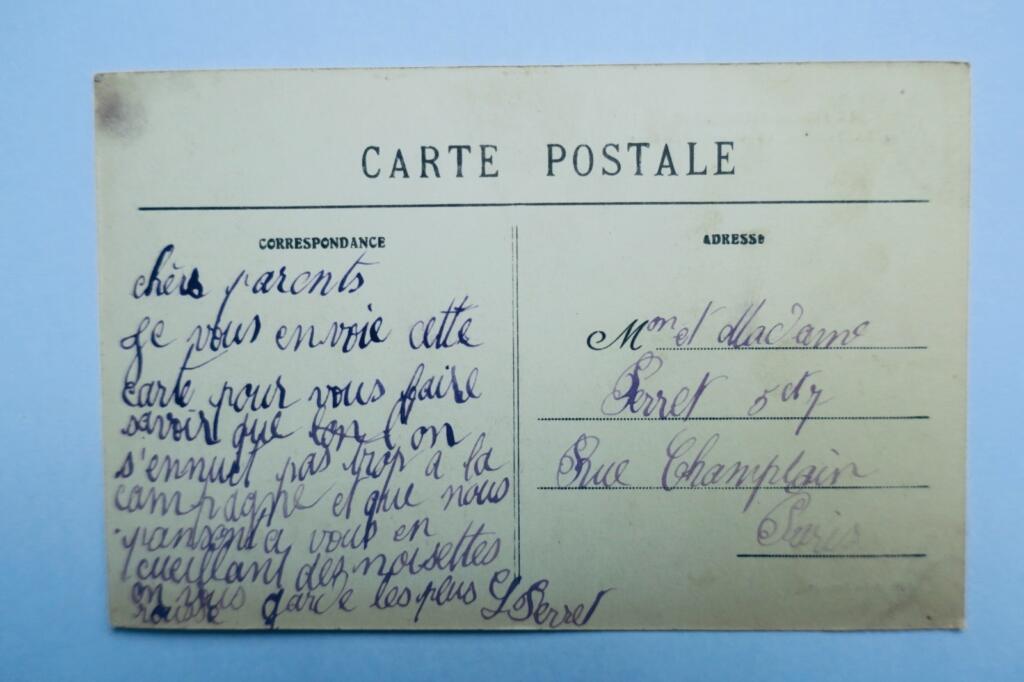 CARTE POSTALE
CORRESPONDANCE
chèrs parents
je vous envoie cette
carte pour vous faire
savoir que lon l'on
s'ennuet pas trop a la
campagne et que nous
panson a vous en
cueillant des noisettes
on vous garde les plus
rousse
L Perret
ADRESSE
Mon et Madame
Perret 5 et 7
Rue Champlain
Paris